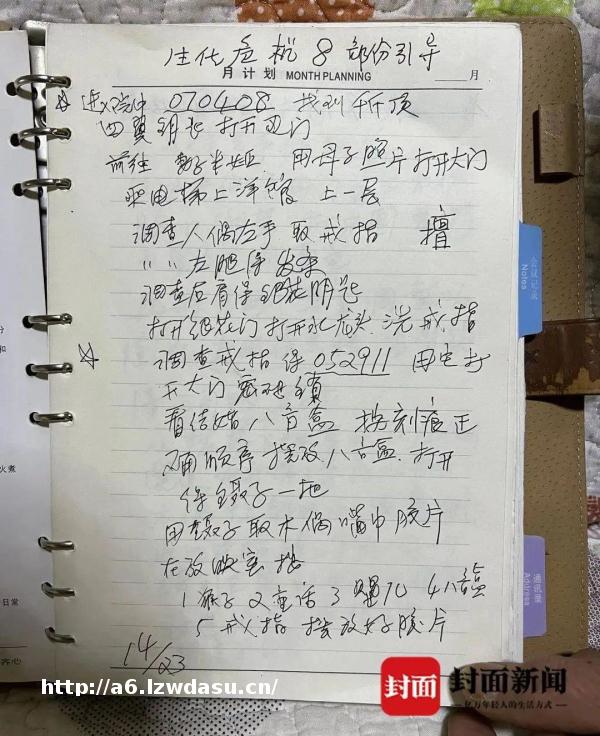 生化危机8部份引导
月计划 MONTH PLANNING 月
070408 找到千斤顶
四翼钥匙 打开双门
前往 用母子照片打开大门
乘电梯上洋馆 上一层
调查人偶左手 取戒指
〃〃左腿得发条
调查后背得银装钥匙
打开银装门 打开水龙头.洗戒指
调查戒指得052911 用它打
开大门密码锁
看结婚八音盒 按刻痕正
确顺序 摆放八音盒.打开
得镊子一把
用镊子取木偶嘴中胶片
在放映室按
1猴子 2童话 3 4八音盒
5戒指 摆放好胶片
14/23
会议记录
Notes
通讯录
Address
火煮
日常
齐心
http://a6.lzwdasu.cn/
封面 封面新闻
亿万年轻人的生活方式